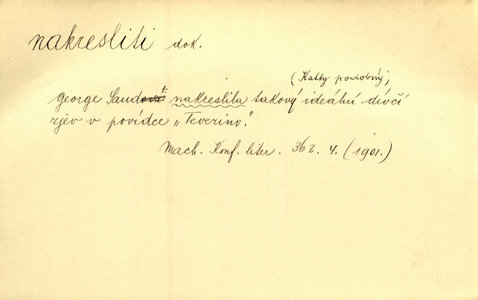 nakresliti dok.
(Kathy podobný,
george Sandová nakreslila takový ideální dívčí
zjev v povídce „Teverino“.
Mach. Konf. liter. 362. 4. (1901.)